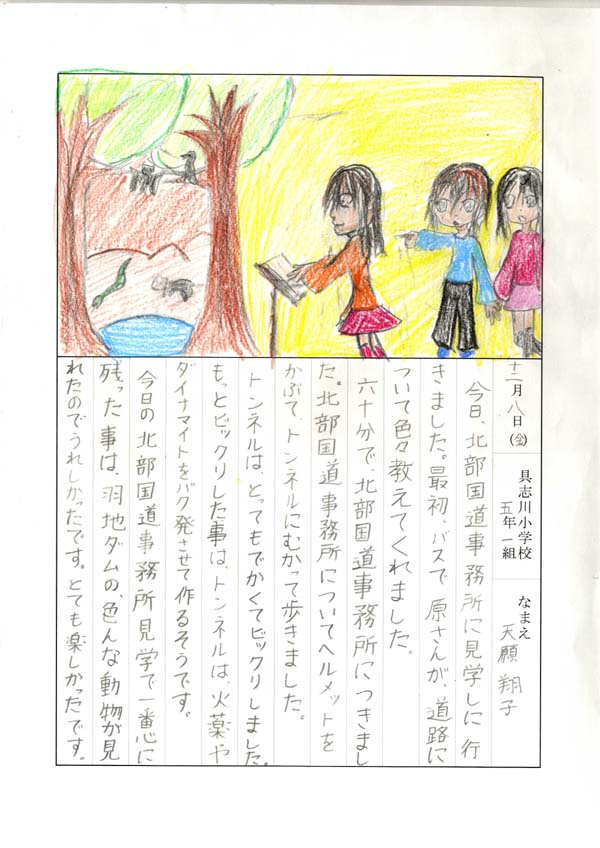 十二月八日(金) 具志川小学校 五年一組 なまえ 天願翔子
今日、北部国道事務所に見学しに行
きました。最初、バスで原さんが、道路に
ついて色々教えてくれました。
六十分で、北部国道事務所につきまし
た。北部国道事務所についてヘルメットを
かぶて、トンネルにむかって歩きました。
トンネルは、とってもでかくてビックリしました。
もっとビックリした事は、トンネルは、火薬や
ダイナマイトをバク発させて作るそうです。
今日の北部国道事務所見学で一番心に
残った事は、羽地ダムの、色んな動物が見
れたのでうれしかったです。とても楽しかったです。